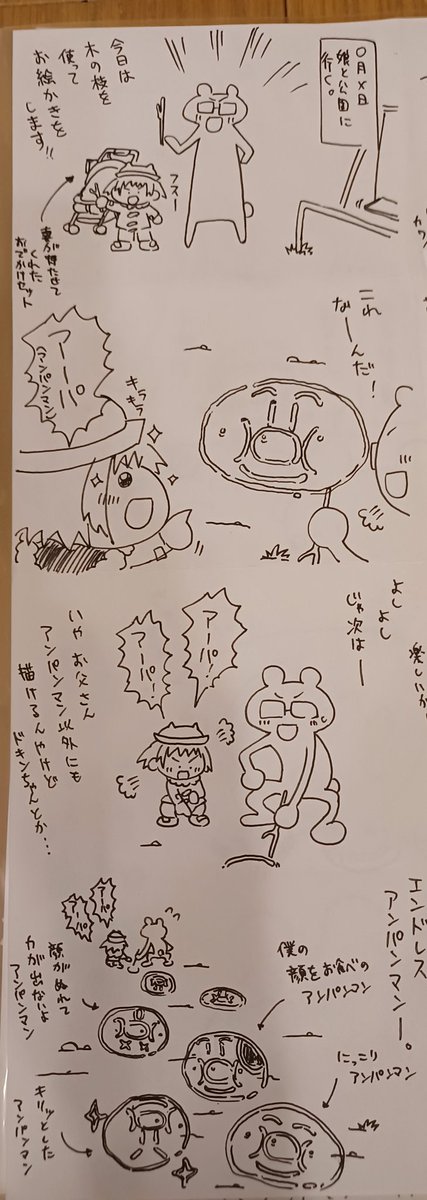 ○月×日
娘と公園に
行く。
今日は
木の枝を
使って
お絵かきを
します!!
フスー
妻が持たせて
くれた
おでかけセット
これ
なーんだ!
キラキラ
アーパ
(アンパンマン)
よし
よし
じゃ次はー
アーパ!
アーパー!
いや お父さん
アンパンマン以外にも
描けるんやけど
ドキンちゃんとか…
エンドレス
アンパンマンー。
アーパ
アーパ
僕の
顔をお食べの
アンパンマン
顔がぬれて
力が出ないよ
アンパンマン
にっこり
アンパンマン
キリッとした
アンパンマン